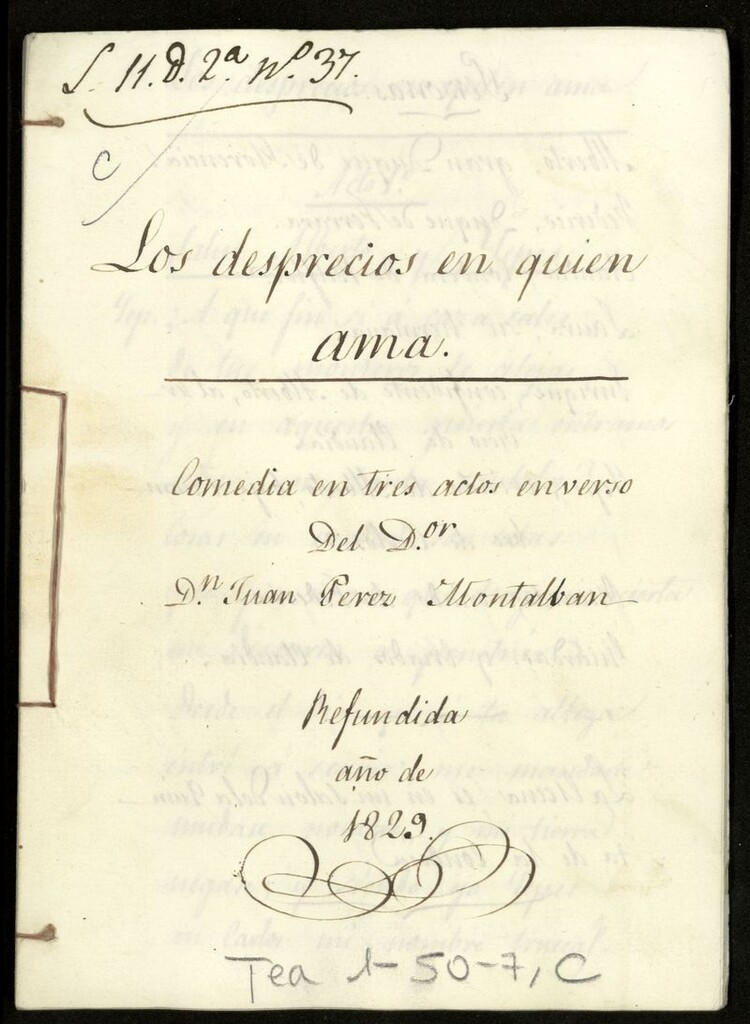 L. 11. D. 2.ª n.º 37.
C
Los desprecios en quien
ama.
Comedia en tres actos en verso
Del D.or
D.n Juan Perez Montalban
Refundida
año de
1829.
Tea 1-50-7, C